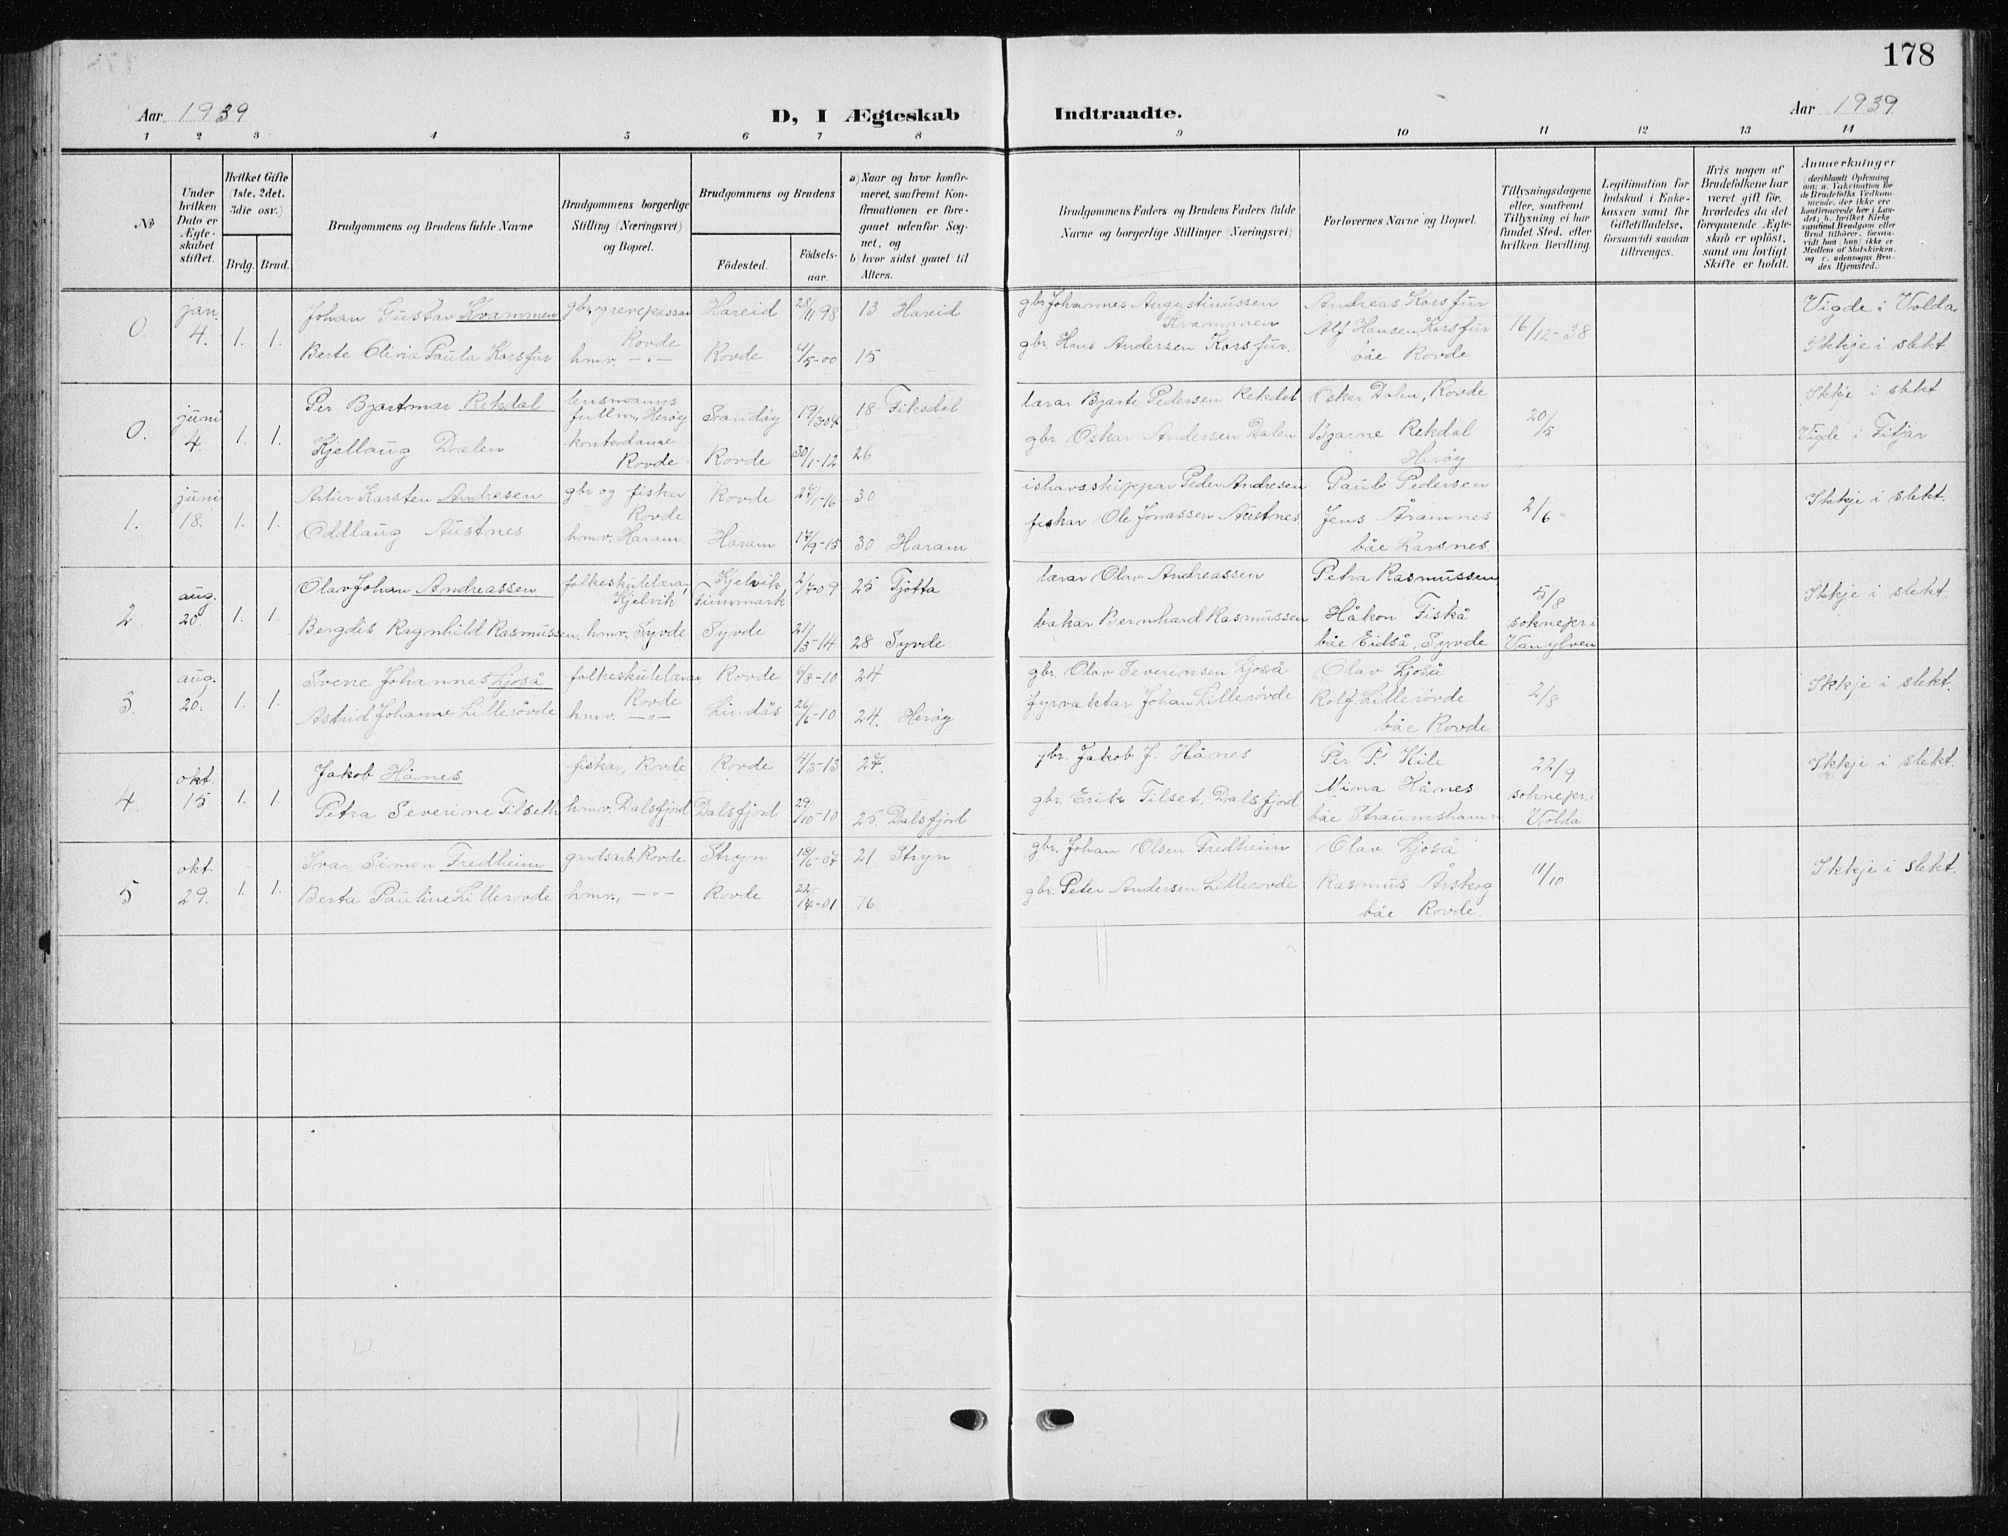 178
Aar 1939
D, I Ægteskab Indtraadte.
Aar 1939
1 2 3 4 5 6 7 8 9 10 11 12 13 14
№
Under hvilken Dato er Ægteskabet stiftet.
Hvilket Gifte (1ste, 2det, 3die osv.)
Brdg. Brud.
Brudgommens og Brudens fulde Navne
Brudgommens borgerlige Stilling (Næringsvei) og Bopæl.
Brudgommens og Brudens
Fødested.
Fødselsaar.
a) Naar og hvor konfirmeret, saafremt Konfirmationen er foregaaet udenfor Sognet, og
b) hvor sidst gaaet til Alters.
Brudgommens Faders og Brudens Faders fulde Navne og borgerlige Stillinger (Næringsvei)
Forlovernes Navne og Bopæl.
Tillysningsdagene eller, saafremt Tillysning ei har fundet Sted, efter hvilken Bevilling.
Legitimation for Indskud i Enkekassen samt for Giftetilladelse, forsaavidt saadan tiltrænges.
Hvis nogen af Brudefolkene har været gift før, hvorledes da det foregaaende Ægteskab er opløst, samt om lovligt Skifte er holdt.
Anmærkninger
0. jan. 4. 1. 1.
Johan Gustav Kvammen
Hareid 28/11 98 13 Hareid
gbr. Johannes Augustinussen Kvammen
Andreas Korsfur
16/12-38
Vigde i Volda
Berte Olivia Paula Korsfur
Rovde
hmv. -"-
Rovde 4/5-00 15
gbr. Hans Andersen Korsfur.
Alf Hansen Korsfur
båe Rovde
Ikkje i slekt
0. juni 4. 1. 1.
Per Bjartmar Rekdal
lensmanns fullm, Herøy
Sandøy 19/3-04 18 Fiksdal
lærar Bjarte Pedersen Rekdal
Oskar Dalen, Rovde
20/5
Ikkje i slekt
Kjellaug Dalen
kontordame Rovde
Rovde 30/1-12 26
gbr. Oskar Andersen Dalen
Bjarne Rekdal
Herøy
Vigde i Fitjar
1. juni 18. 1. 1.
Artur Karsten Andresen
gbr og fiskar Rovde
Rovde 27/1-16 30
ishavsskippar Peder Andresen
Paul Pedersen
2/6
Ikkje i slekt.
Oddlaug Austnes
hmv. Haram
Haram 17/9-15 30 Haram
fiskar Ole Jonassen Austnes
Jens Aramnes
båe Larsnes.
2. aug. 20. 1. 1.
Olav Johan Andreassen
folkeskulelærar, Kjelvik
Kjelvik, Finnmark
25 Tjøtta
lærar Olav Andreassen
Petra Rasmussen
5/8
sokneprci Vanylven
Ikkje i slekt.
Bergdis Ragnhild Rasmussen
hmv. Syvde
Syvde 21/5-14 28 Syvde
bakar Bernhard Rasmussen
Håkon Fiskå
båe Eidså, Syvde
3. aug. 20. 1. 1.
Svene Johannes Ljoså
folkeskulelærar Rovde
Rovde 6/8-10 24
gbr. Olav Severinsen Ljoså
Olav Ljoså
2/8
Ikkje i slekt.
Astrid Johanne Lillerovde
hmv. -"-
Lindås 26/6-10 24. Herøy
fyrvaktar Johan Lillerovde
Rolf Lillerovde
båe Rovde
4. okt. 15 1. 1.
Jakob Hånes
fiskar, Rovde
Rovde 4/3-13 27.
gbr. Jakob J. Hånes
Per P. Kile
22/9
soknepr. i Volda
Ikkje i slekt.
Petra Severine Tilseth
hmv. Dalsfjord
Dalsfjord 29/10-10 25. Dalsfjord
gbr. Erik Tilset, Dalsfjord
Mina Hånes
båe Straumshamn
5 okt. 29. 1. 1.
Ivar Simon Fredheim
gardsarb. Rovde
Stryn 18/6-07 21 Stryn
gbr. Johan Olsen Fredheim
Olav Ljoså
11/10
Ikkje i slekt.
Berta Pauline Lillerovde
hmv. -"-
Rovde 16
gbr. Peter Andersen Lillerovde
Rasmus Årskog
båe Rovde.